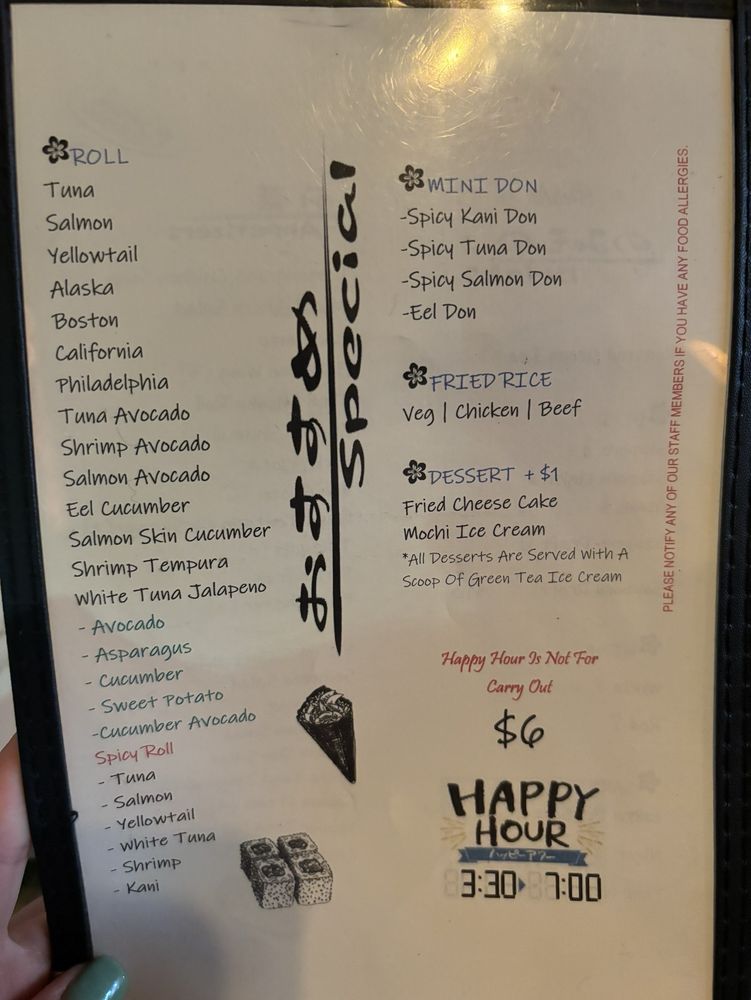 ROLL
Tuna
Salmon
Yellowtail
Alaska
Boston
California
Philadelphia
Tuna Avocado
Shrimp Avocado
Salmon Avocado
Eel Cucumber
Salmon Skin Cucumber
Shrimp Tempura
White Tuna Jalapeno
- Avocado
- Asparagus
- Cucumber
- Sweet Potato
-Cucumber Avocado
Spicy Roll
- Tuna
- Salmon
- Yellowtail
- White Tuna
- Shrimp
- Kani
Special
MINI DON
-Spicy Kani Don
-Spicy Tuna Don
-Spicy Salmon Don
-Eel Don
FRIED RICE
Veg | Chicken | Beef
DESSERT + $1
Fried Cheese Cake
Mochi Ice Cream
*All Desserts Are Served With A
Scoop Of Green Tea Ice Cream
Happy Hour Is Not For
Carry Out
$6
HAPPY
HOUR
ハッピーアワー
3:30 7:00
PLEASE NOTIFY ANY OF OUR STAFF MEMBERS IF YOU HAVE ANY FOOD ALLERGIES.